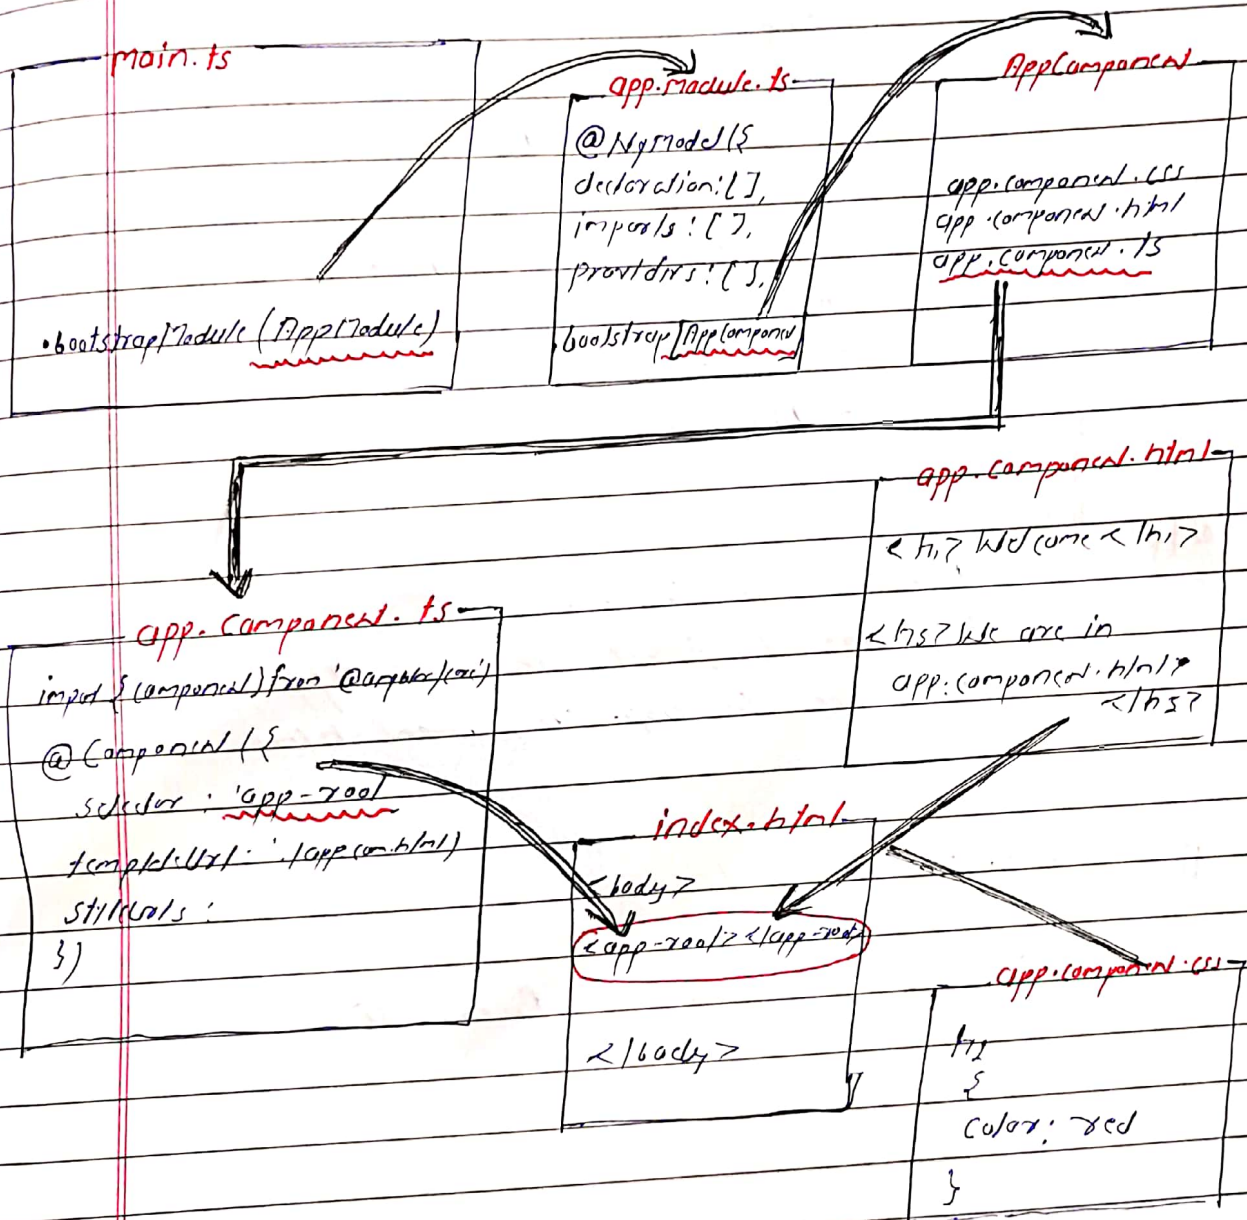 main.ts
.bootstrapModule (AppModule)
app.module.ts
@NgModel({
declaration:[],
imports:[],
providers:[],
bootstrap[AppComponent
AppComponent
app.component.css
app.component.html
app.component.ts
app.component.html
<h1> Welcome </h1>
<h5> We are in
app.component.html
</h5>
app.component.ts
import {Component} from '@angular/core')
@Component({
selector : 'app-root
templateUrl : './app.com.html)
styleUrls :
})
index.html
<body>
<app-root></app-root>
</body>
app.component.css
{
color: red
}